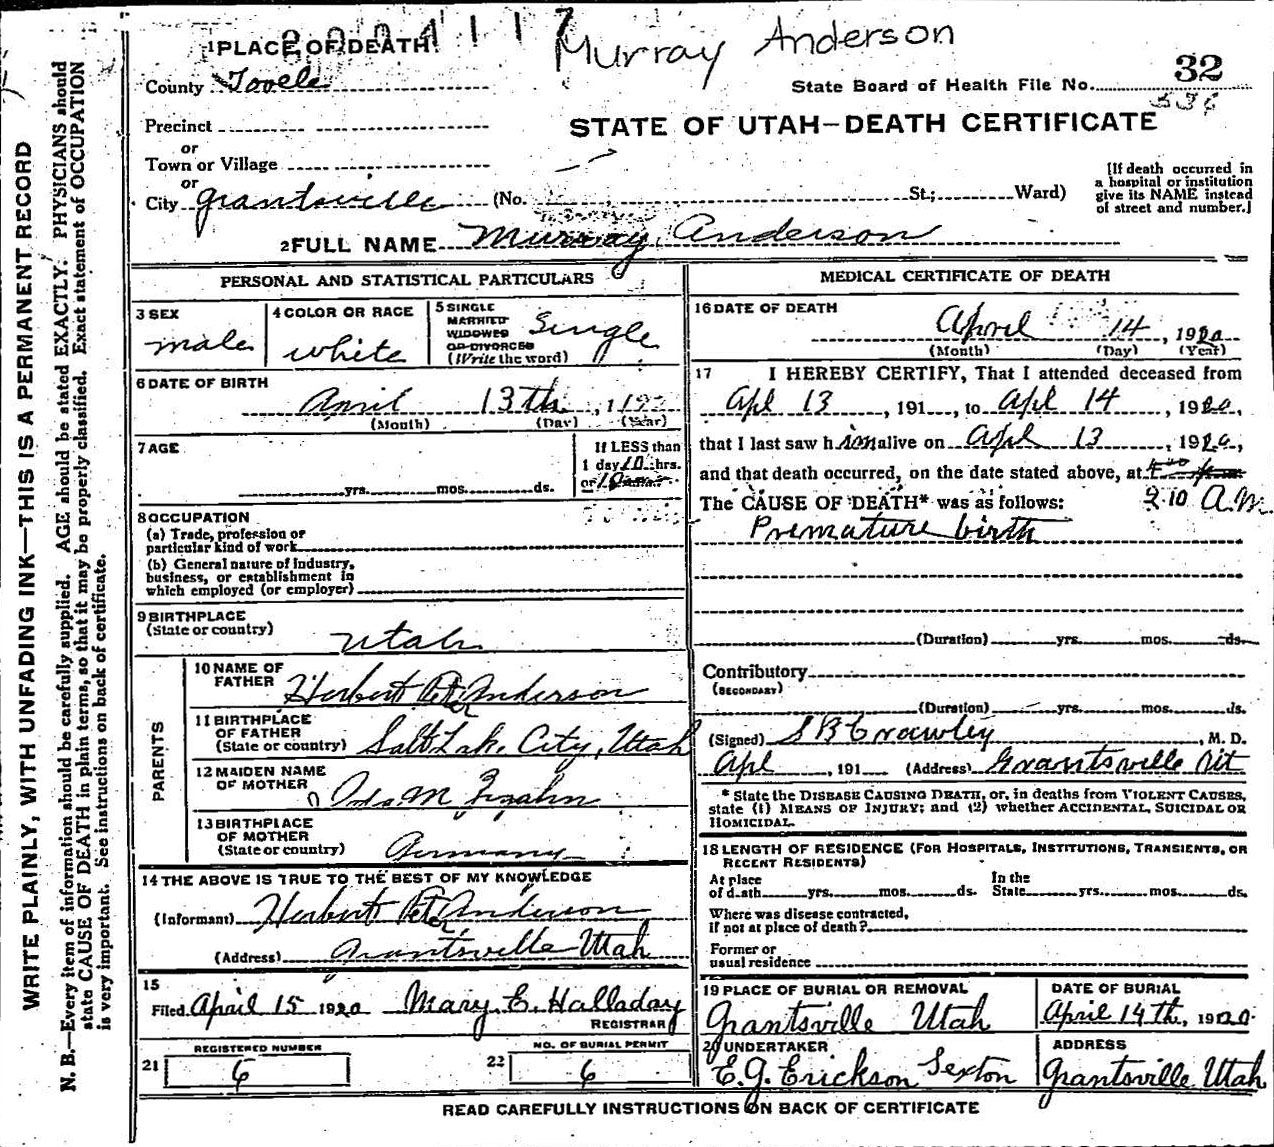 Murray Anderson
1 PLACE OF DEATH
County Tooele
State Board of Health File No. 32
336
Precinct
or
STATE OF UTAH—DEATH CERTIFICATE
Town or Village
or
City Grantsville (No. St.; Ward)
[If death occurred in
a hospital or institution
give its NAME instead
of street and number.]
2 FULL NAME Murray Anderson
PERSONAL AND STATISTICAL PARTICULARS
3 SEX
male
4 COLOR OR RACE
white
5 SINGLE
MARRIED
WIDOWED
OR DIVORCED
(Write the word)
Single
6 DATE OF BIRTH
April 13th, 1
(Month) (Day) (Year)
7 AGE
yrs. mos. ds.
If LESS than
1 day 10 hrs.
or
8 OCCUPATION
(a) Trade, profession or
particular kind of work
(b) General nature of Industry,
business, or establishment in
which employed (or employer)
9 BIRTHPLACE
(State or country)
Utah
PARENTS
10 NAME OF
FATHER
Herbert Peter Anderson
11 BIRTHPLACE
OF FATHER
(State or country)
Salt Lake City, Utah
12 MAIDEN NAME
OF MOTHER
Ida M
13 BIRTHPLACE
OF MOTHER
(State or country)
Germany
14 THE ABOVE IS TRUE TO THE BEST OF MY KNOWLEDGE
(Informant) Herbert Peter Anderson
(Address) Grantsville Utah
15
Filed April 15 1920 Mary E. Halladay
REGISTRAR
21 REGISTERED NUMBER
6
22 NO. OF BURIAL PERMIT
6
MEDICAL CERTIFICATE OF DEATH
16 DATE OF DEATH
April 14, 1920
(Month) (Day) (Year)
17 I HEREBY CERTIFY, That I attended deceased from
Apl 13, 191, to Apl 14, 1920,
that I last saw him alive on Apl 13, 1920,
and that death occurred, on the date stated above, at
The CAUSE OF DEATH* was as follows: 2 10 A.M.
Premature birth
(Duration) yrs. mos. ds.
Contributory
(SECONDARY)
(Duration) yrs. mos. ds.
(Signed) S B Crawley, M. D.
Apl, 191 (Address) Grantsville Ut
* State the DISEASE CAUSING DEATH, or, in deaths from VIOLENT CAUSES,
state (1) MEANS OF INJURY; and (2) whether ACCIDENTAL, SUICIDAL OR
HOMICIDAL.
18 LENGTH OF RESIDENCE (FOR HOSPITALS, INSTITUTIONS, TRANSIENTS, OR
RECENT RESIDENTS)
At place
of death yrs. mos. ds.
In the
State yrs. mos. ds.
Where was disease contracted,
if not at place of death?
Former or
usual residence
19 PLACE OF BURIAL OR REMOVAL
Grantsville Utah
DATE OF BURIAL
April 14th, 1920.
20 UNDERTAKER
E.G. Erickson Sexton
ADDRESS
Grantsville Utah
READ CAREFULLY INSTRUCTIONS ON BACK OF CERTIFICATE
WRITE PLAINLY, WITH UNFADING INK—THIS IS A PERMANENT RECORD
N. B.—Every item of information should be carefully supplied. AGE should be stated EXACTLY. PHYSICIANS should
state CAUSE OF DEATH in plain terms, so that it may be properly classified. Exact statement of OCCUPATION
is very important. See instructions on back of certificate.